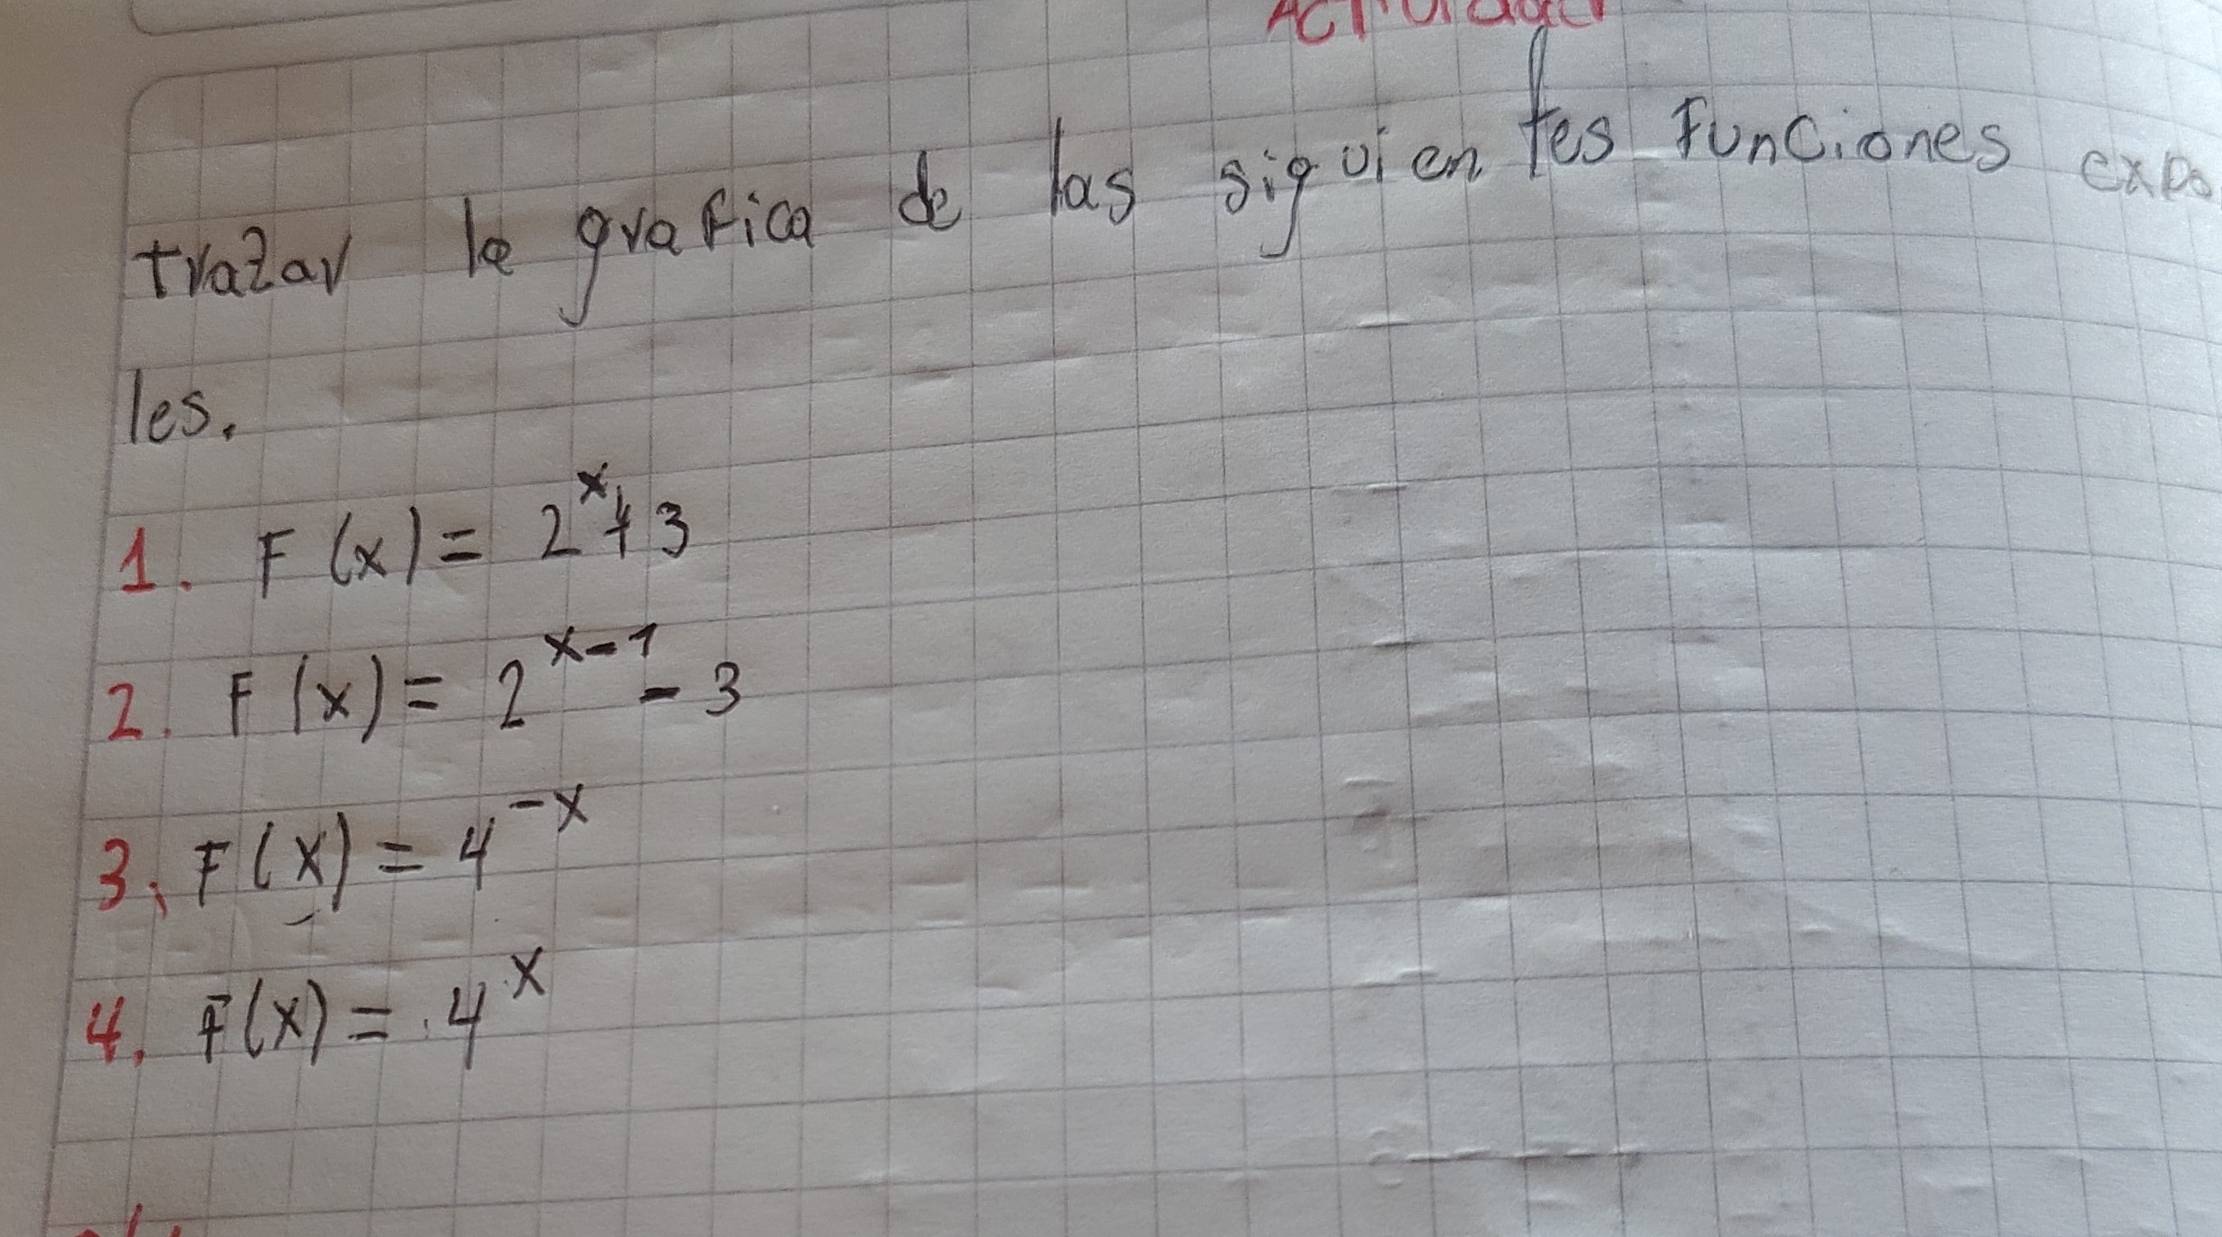 Actividad
trazar la grafica de las siguientes funciones expo
les.
1. F(x) = 2^x + 3
2. F(x) = 2^{x-1} - 3
3. F(x) = 4^{-x}
4. F(x) = 4^x